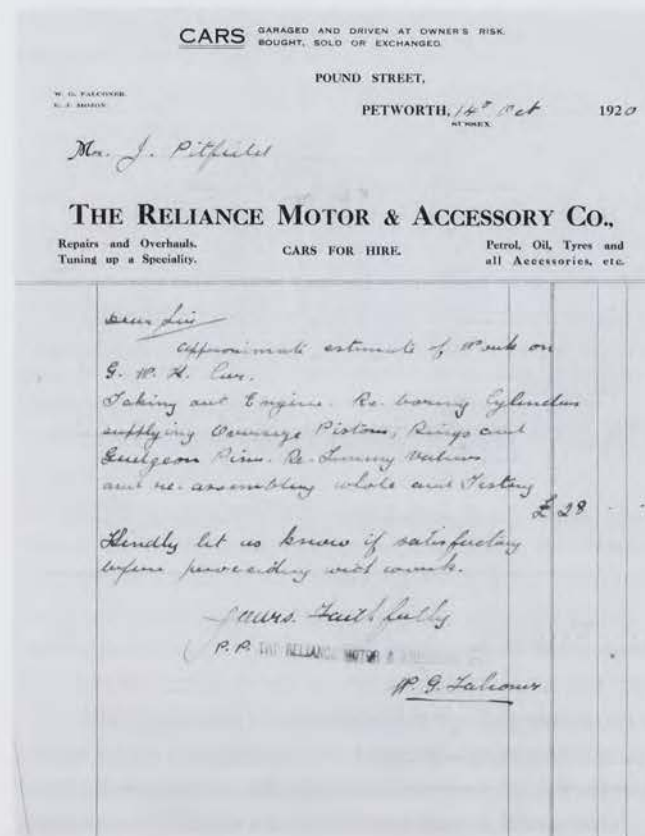 CARS GARAGED AND DRIVEN AT OWNER'S RISK.
BOUGHT, SOLD OR EXCHANGED.
POUND STREET,
W. G. FALCONER.
PETWORTH, 14th Oct 1920
SUSSEX
Mr. J. Pitfield
THE RELIANCE MOTOR & ACCESSORY CO.,
Repairs and Overhauls.
Tuning up a Speciality.
CARS FOR HIRE.
Petrol, Oil, Tyres and
all Accessories, etc.
Dear Sir
approximate estimate of Work on
G. W. K. Car.
Taking out Engine. Re-boring Cylinders
supplying Oversize Pistons, Rings and
Gudgeon Pins. Re-Timing Valves
and re-assembling whole and Testing
£ 28 - -
Kindly let us know if satisfactory
before proceeding with work.
Yours Faithfully
P.P. THE RELIANCE MOTOR &
W. G. Falconer